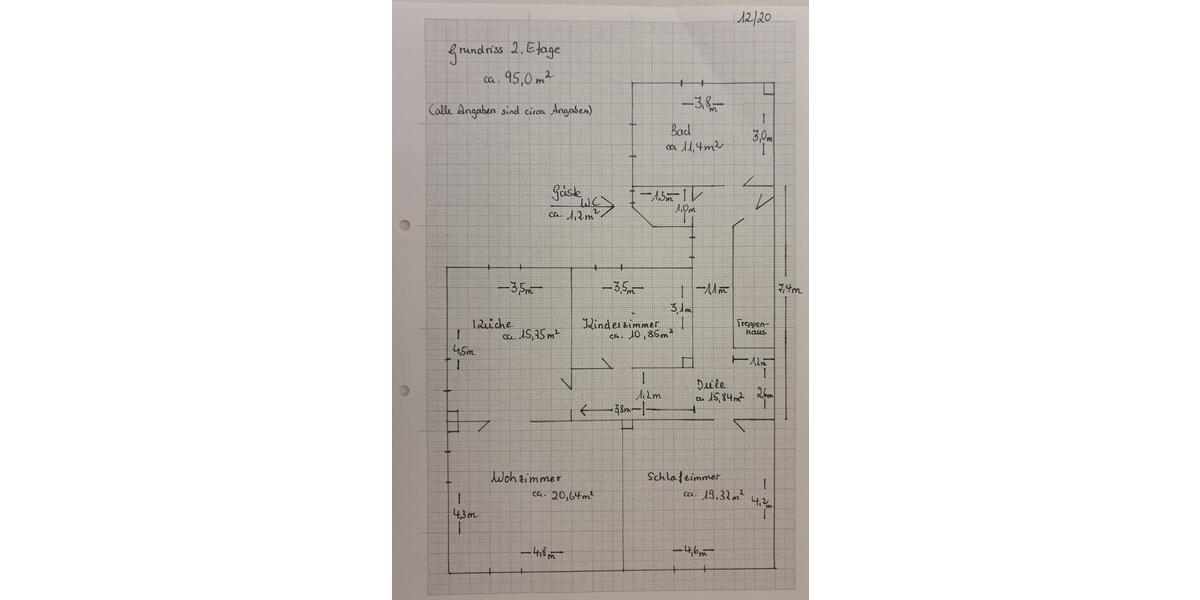 12/20
Grundriss 2. Etage
ca. 95,0 m²
(alle Angaben sind circa Angaben)
3,8m
Bad
ca 11,4m²
3,0m
Gäste
WC
ca. 1,2m²
1,3m
1,0m
3,5m
3,5m
1,1m
7,4m
3,1m
Küche
ca. 15,75m²
Kinderzimmer
ca. 10,85m²
Treppen-
haus
4,5m
1,2m
1,2m
Diele
ca 15,84m²
2,6m
3,8m
Wohzimmer
ca. 20,64m²
Schlafzimmer
ca. 19,32m²
4,3m
4,2m
4,8m
4,6m